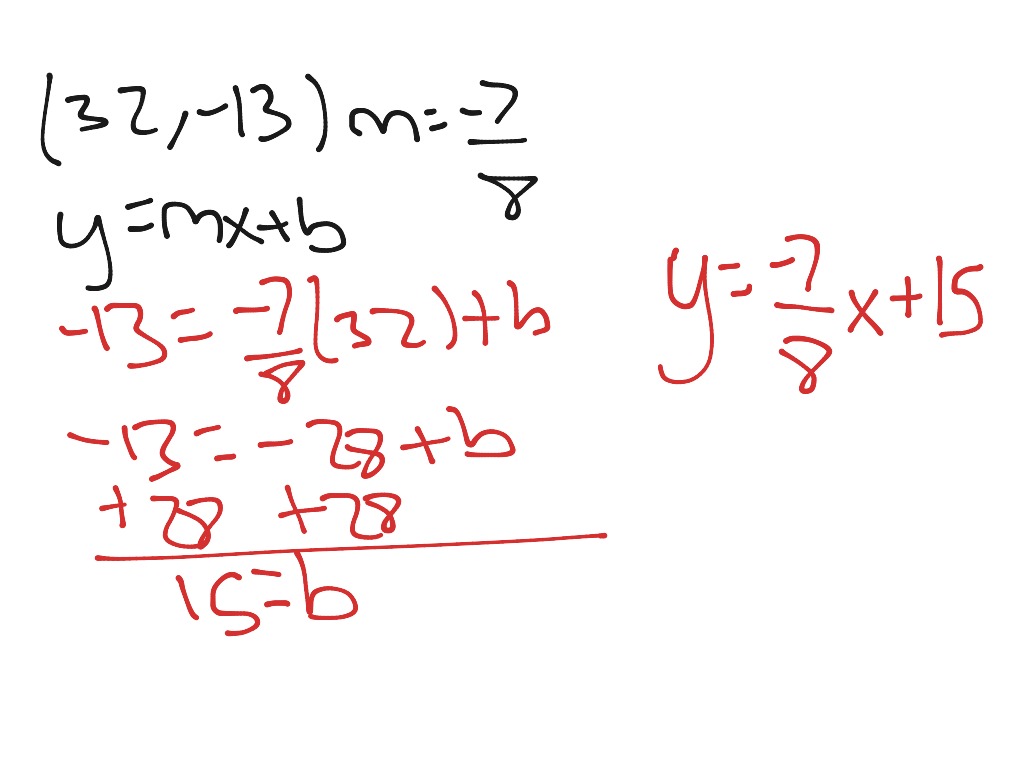 (32,-13) m=-7/8
y=mx+b
-13=-7/8(32)+b
-13=-28+b
+28 +28
15=b
y=-7/8x+15